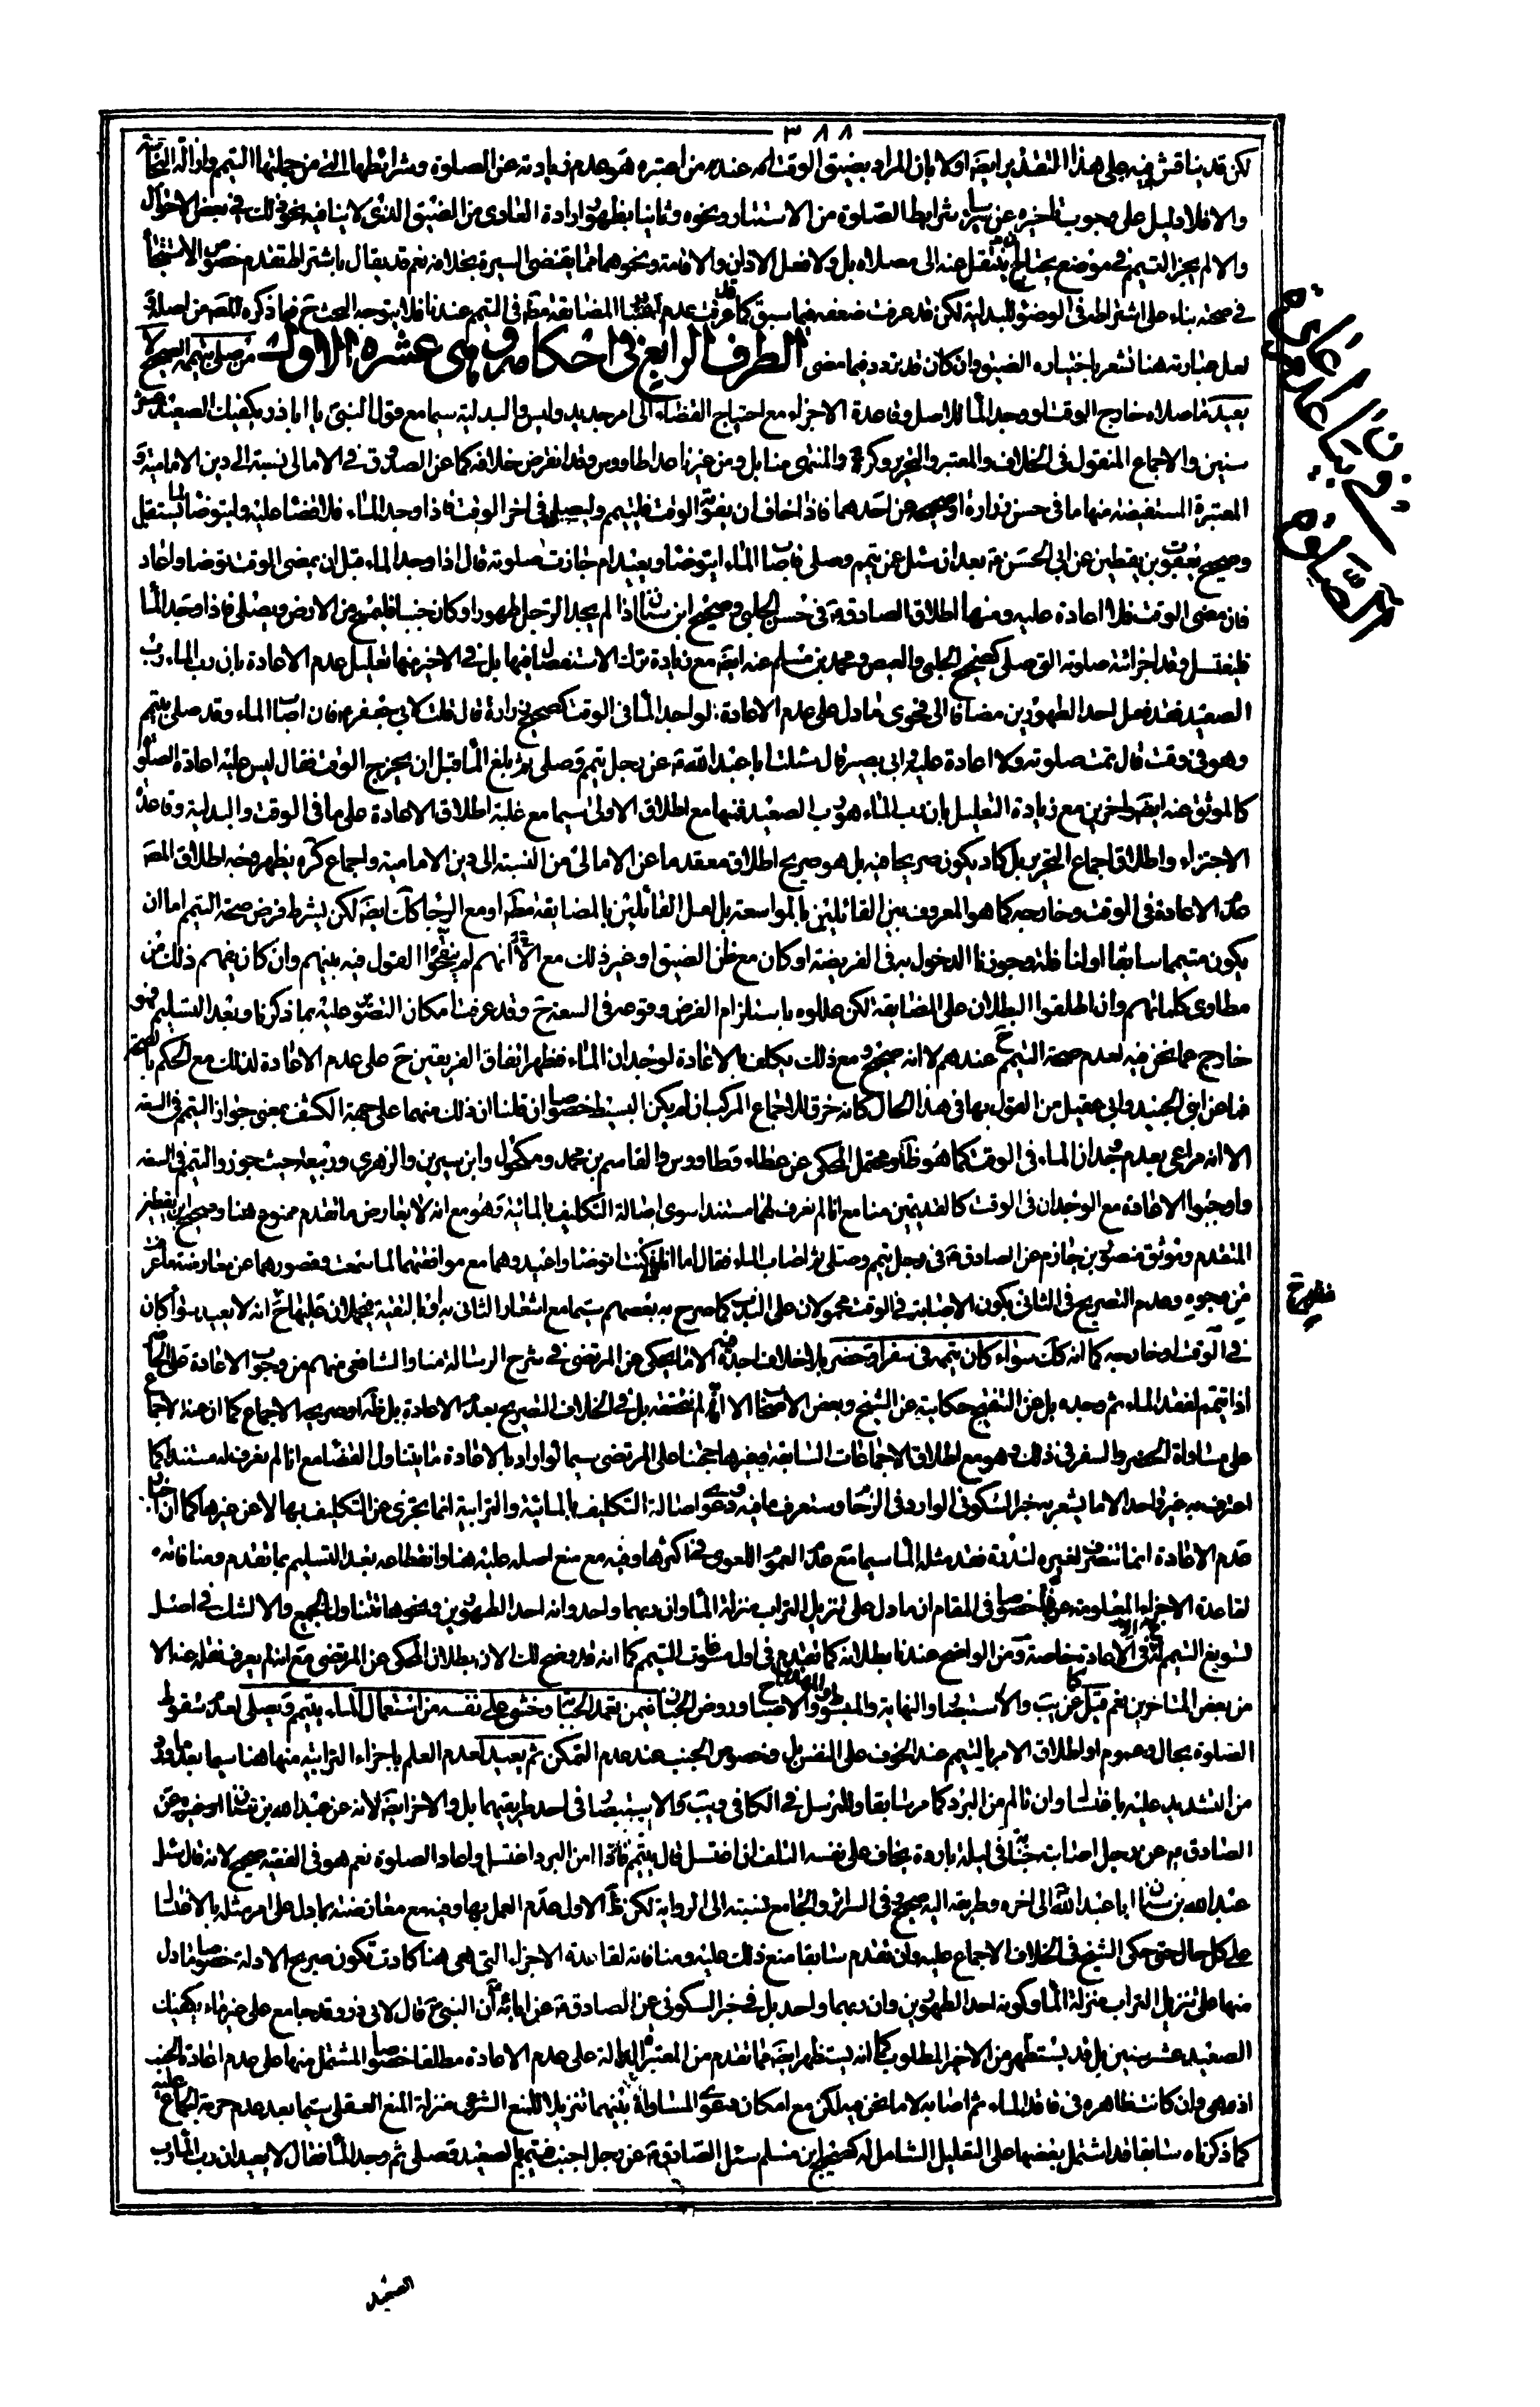 ٣٨٨
لكن قد يناقش فيه على هذا التقدير ايضا اولا بان المراد بضيق الوقت عند من اعتبره هو عدم زيادته عن الصلوة وشرائطها التي من جملتها التيمم وازالة النجاسة
والا فلا دليل على وجوب تاخيره عن سائر شرائط الصلوة من الاستتار ونحوه وثانيا بظهور ارادة العادي من الضيق الذي لا ينافيه نحو ذلك في بعض الاحوال
والا لم يجز التيمم في موضع يحتاج ان ينتقل عنه الى مصلاه بل ولا فعل الاذان والاقامة ونحوهما مما يقتضي السيرة بخلافه نعم قد يقال باشتراط تقدم خصوص الاستنجاء
في صحته بناء على اشتراطه في الوضوء للبدلية لكن قد عرفت ضعفه فيما سبق كما عرفت عدم المضايقة في التيمم عندنا فلا يتوجه البحث ح فيما ذكره المصـ من اصله و
لعل عبارته هنا تشعر باختياره الضيق وان كان قد تردد فيما مضى الطرف الرابع في احكامه وهي عشرة الاول من صلى بتيممه الصحيح لا
يعيد ما صلاه خارج الوقت لو وجد الماء للاصل وقاعدة الاجزاء مع احتياج القضاء الى امر جديد وليس والبدلية سيما مع قول النبي يا ابا ذر يكفيك الصعيد عشر
سنين والاجماع المنقول في الخلاف والمعتبر والتحرير وكره والمنتهى منا بل ومن غيرنا عدا طاووس وقد انقرض خلافه كما عن الصدوق في الامالي نسبته الى دين الامامية و
المعتبرة المستفيضة منها ما في حسن زرارة او صحيحه عن احدهما فاذا خاف ان يفوته الوقت فليتيمم وليصلي في اخر الوقت فاذا وجد الماء فلا قضاء عليه وليتوضا لما يستقبل
وصحيح يعقوب بن يقطين عن ابي الحسن ع بعد ان سئل عن تيمم وصلى فاصاب الماء ايتوضا ويعيد ام جازت صلوته قال اذا وجد الماء قبل ان يمضي الوقت توضا واعاد
فان مضى الوقت فلا اعادة عليه ومنها اطلاق الصادق ع في حسن الحلبي وصحيح ابن سنان اذا لم يجد الرجل طهورا وكان جنبا فليمسح من الارض ويصلي فاذا وجد الماء
فليغتسل وقد اجزاته صلوته التي صلى كصحيح الحلبي والعيص ومحمد بن مسلم عنه ايضا مع زيادة ترك الاستفصال فيها بل في الاخير منها تعليل عدم الاعادة بان رب الماء رب
الصعيد فقد فعل احد الطهورين مضافا الى فحوى ما دل على عدم الاعادة لواجد الماء في الوقت كصحيح زرارة قال قلت لابي جعفر ع فان اصاب الماء وقد صلى بتيمم
وهو في وقت قال تمت صلوته ولا اعادة عليه وابي بصير قال سئلت ابا عبد الله ع عن رجل تيمم وصلى ثم بلغ الماء قبل ان يخرج الوقت فقال ليس عليه اعادة الصلوة
كالموثق عنه ايضا واخرين مع زيادة التعليل بان رب الماء هو رب الصعيد فيها مع اطلاق الاولى سيما مع غلبة اطلاق الاعادة على ما في الوقت والبدلية وقاعدة
الاجتزاء واطلاق اجماع التحرير بل كاد يكون صريحا فيه بل هو صريح اطلاق معقد ما عن الامالي من النسبة الى دين الامامية واجماع كره يظهر وجه اطلاق المصـ
عدم الاعادة في الوقت وخارجه كما هو المعروف بين القائلين بالمواسعة بل لعل القائلين بالمضايقة او مع الرجاء كك ايضا لكن يشرط فرض صحة التيمم اما ان
يكون متيمما سابقا او لنافلة وجوزنا الدخول به في الفريضة او كان مع ظن الضيق او غير ذلك مع الا انهم لم ينقحوا القول فيه بينهم وان كان يفهم ذلك من
مطاوي كلماتهم وان اطلقوا البطلان على المضايقة لكن عللوه باستلزام الفرض وقوعه في السعة ح وقد عرفت امكان التصور عليه بما ذكرنا وبعد التسليم فهو
خارج عما نحن فيه لعدم صحة التيمم ح عندهم لا انه صحيح ومع ذلك يكلف بالاعادة لوجدان الماء فظهر اتفاق الفريقين ح على عدم الاعادة لذلك مع الحكم بالصحة
فما عن ابني الجنيد وابي عقيل من القول بها في هذا الحال كانه خرق للاجماع المركب ان لم يكن البسيط خصوصا ان قلنا ان ذلك منهما على جهة الكشف بمعنى جواز التيمم في السعة
الا انه مراعى بعدم وجدان الماء في الوقت كما هو ظاهر ومحتمل المحكي عن عطاء وطاووس والقاسم بن محمد ومكحول وابن سيرين والزهري وربيعة حيث جوزوا التيمم في السعة
واوجبوا الاعادة مع الوجدان في الوقت كالقديمين منا مع انا لم نعرف لهما مستندا سوى اصالة التكليف بالمائية وهو مع انه لا يعارض ما تقدم ممنوع هنا وصحيح ابن يقطين
المتقدم وموثق منصور بن حازم عن الصادق ع في رجل تيمم وصلى ثم اصاب الماء فقال اما انا فكنت اتوضا واعيد وهما مع موافقتهما لما سمعت وقصورهما عن معارضة ما مر
من وجوه وعدم التصريح في الثاني بكون الاصابة في الوقت محمولان على الندب كما صرح به بعضهم سيما مع اشعار الثاني به او التقية فيحملان عليها ح انه لا يعيد سواء كان
في الوقت او خارجه كما انه كك سواء كان تيممه في سفر او حضر بلا خلاف اجده فيه الا ما يحكى عن المرتضى في شرح الرسالة منا والشافعي منهم من وجوب الاعادة على الحاضر
اذا تيمم لفقد الماء ثم وجده بل عن التنقيح حكايته عن الشيخ وبعض الاصحاب الا اني لم اتحققه بل في الخلاف التصريح بعدم الاعادة بل ظاهره او صريحه الاجماع كما ان عنه الاجماع
على مساواة الحضر والسفر في ذلك وهو مع اطلاق الاجماعات السابقة وغيرها حجتنا على المرتضى سيما لو اراد بالاعادة ما يتناول القضاء مع انا لم نعرف له مستندا كما
اعترف به غير واحد الا ما يشعر به خبر السكوني الوارد في الزحام وستعرف ما فيه ودعوى اصالة التكليف بالمائية والترابية انما يجزي عن التكليف بها لا عن غيرها كما ان اخبار
عدم الاعادة انما تنصرف لغيره لندرة فقد مثله الماء سيما مع عدم العموم اللغوي في اكثرها وفيه مع منع اصله عليه هنا وانقطاعه بعد التسليم بما تقدم ومنافاته
لقاعدة الاجزاء المعلومة خصوصا في المقام ان ما دل على تنزيل التراب منزلة الماء وان ربهما واحد وانه احد الطهورين ونحوها يتناول الجميع والا لشك في اصل
تسويغ التيمم له لا في الاعادة خاصة ومن الواضح عندنا بطلانه كما تقدم في اول مسوغات التيمم كما انه قد وضح لك الان بطلان المحكي عن المرتضى مع انه لم يعرف نقله عنه الا
من بعض المتاخرين نعم قيل كما عن يب والاستبصار والنهاية والمبسوط والاصباح وروض الجنان فيمن تعمد الجنابة وخشي على نفسه من استعمال الماء يتيمم ويصلي لعدم سقوط
الصلوة بحال وعموم او اطلاق الامر بالتيمم عند الخوف على النفس بل وخصوص الجنب عند عدم التمكن ثم يعيد لعدم العلم باجزاء الترابية منها هنا سيما بعد ما ورد
من التشديد عليه باغتساله وان تالم من البرد كما مر سابقا وللمرسل في الكافي ويب والاستبصار في احد طريقيهما بل والاخر ايضا لانه عن عبد الله بن سنان او غيره عن
الصادق ع عن رجل اصابته جنابة في ليلة باردة يخاف على نفسه التلف ان اغتسل قال يتيمم فاذا امن البرد اغتسل واعاد الصلوة نعم هو في الفقيه صحيح لانه قال سئل
عبد الله بن سنان ابا عبد الله الى اخره وطريقه اليه صحيح وفي السرائر والجامع نسبته الى الرواية لكن ظاهر الاول عدم العمل بها وفيه مع معارضته بما دل على امر مثله بالاغتسال
على كل حال حتى حكى الشيخ في الخلاف الاجماع عليه وان تقدم سابقا منع ذلك عليه ومنافاته لقاعدة الاجزاء التي هي هنا كادت تكون صريح الادلة خصوصا ما دل
منها على تنزيل التراب منزلة الماء وكونه احد الطهورين وان ربهما واحد بل في خبر السكوني عن الصادق ع عن ابائه ع ان النبي ص قال لابي ذر وقد جامع على غير ماء يكفيك
الصعيد عشر سنين بل قد يستظهر من الاخير المطلوب كما انه يستظهر ايضا مما تقدم من المعتبرة الدالة على عدم الاعادة مطلقا خصوصا المشتمل منها على عدم اعادة الجنب
اذ هي وان كانت ظاهرة في فاقد الماء ثم اصابه لا ما نحن فيه لكن مع امكان دعوى المساواة بينهما تنزيلا للمنع الشرعي منزلة المنع العقلي سيما بعد عدم حرمة الجماع عليه
كما ذكرناه سابقا قد اشتمل بعضها على التعليل الشامل له كصحيح ابن مسلم سئل الصادق ع عن رجل اجنب فتيمم بالصعيد وصلى ثم وجد الماء فقال لا يعيد ان رب الماء رب
الصعيد